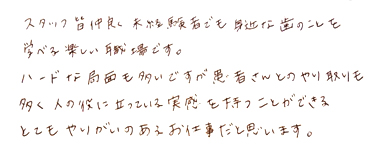 スタッフ皆仲良く未経験者でも身近な歯のことを
学べる楽しい職場です。
ハードな局面も多いですが患者さんとのやり取りも
多く人の役に立っている実感を持つことができる
とてもやりがいのあるお仕事だと思います。